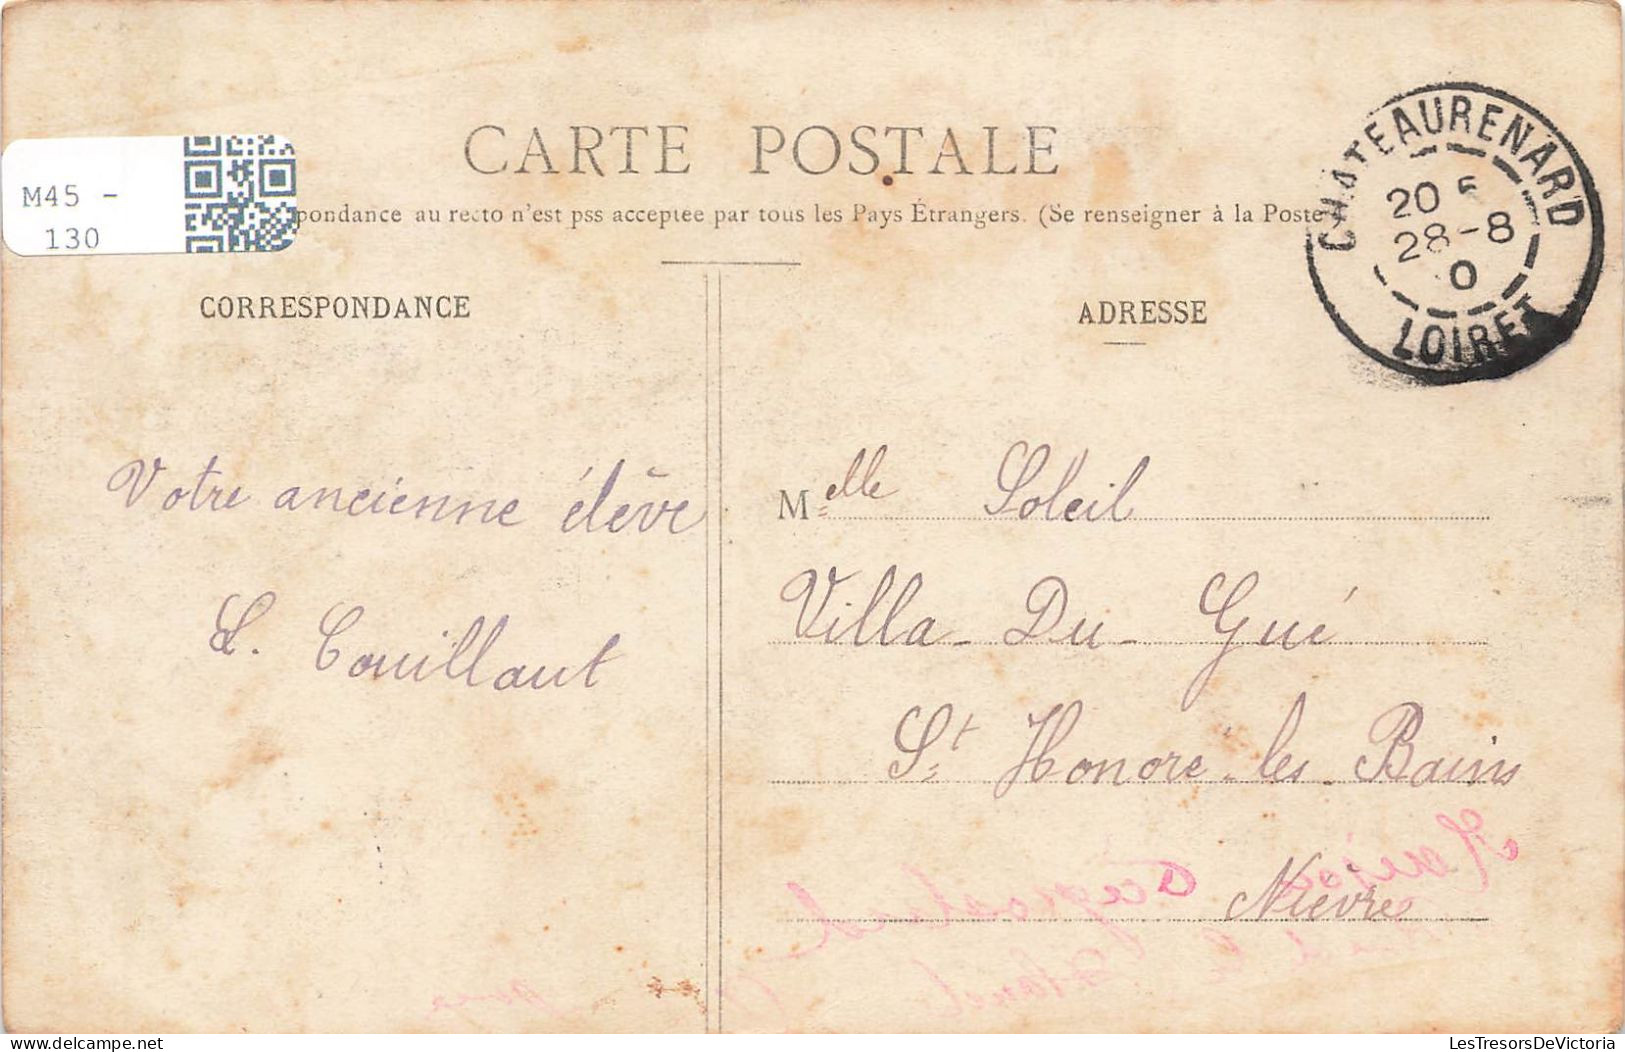 CARTE POSTALE
M45 -
130
pondance au recto n'est pss acceptée par tous les Pays Étrangers. (Se renseigner à la Poste
CHATEAURENARD
20
28-8
0
LOIRET
CORRESPONDANCE
ADRESSE
Votre ancienne élève
L. Couillaut
Melle Soleil
Villa - Du - Gué
St Honoré - les - Bains
Nièvre
LesTresorsDeVictoria
delcampe.net